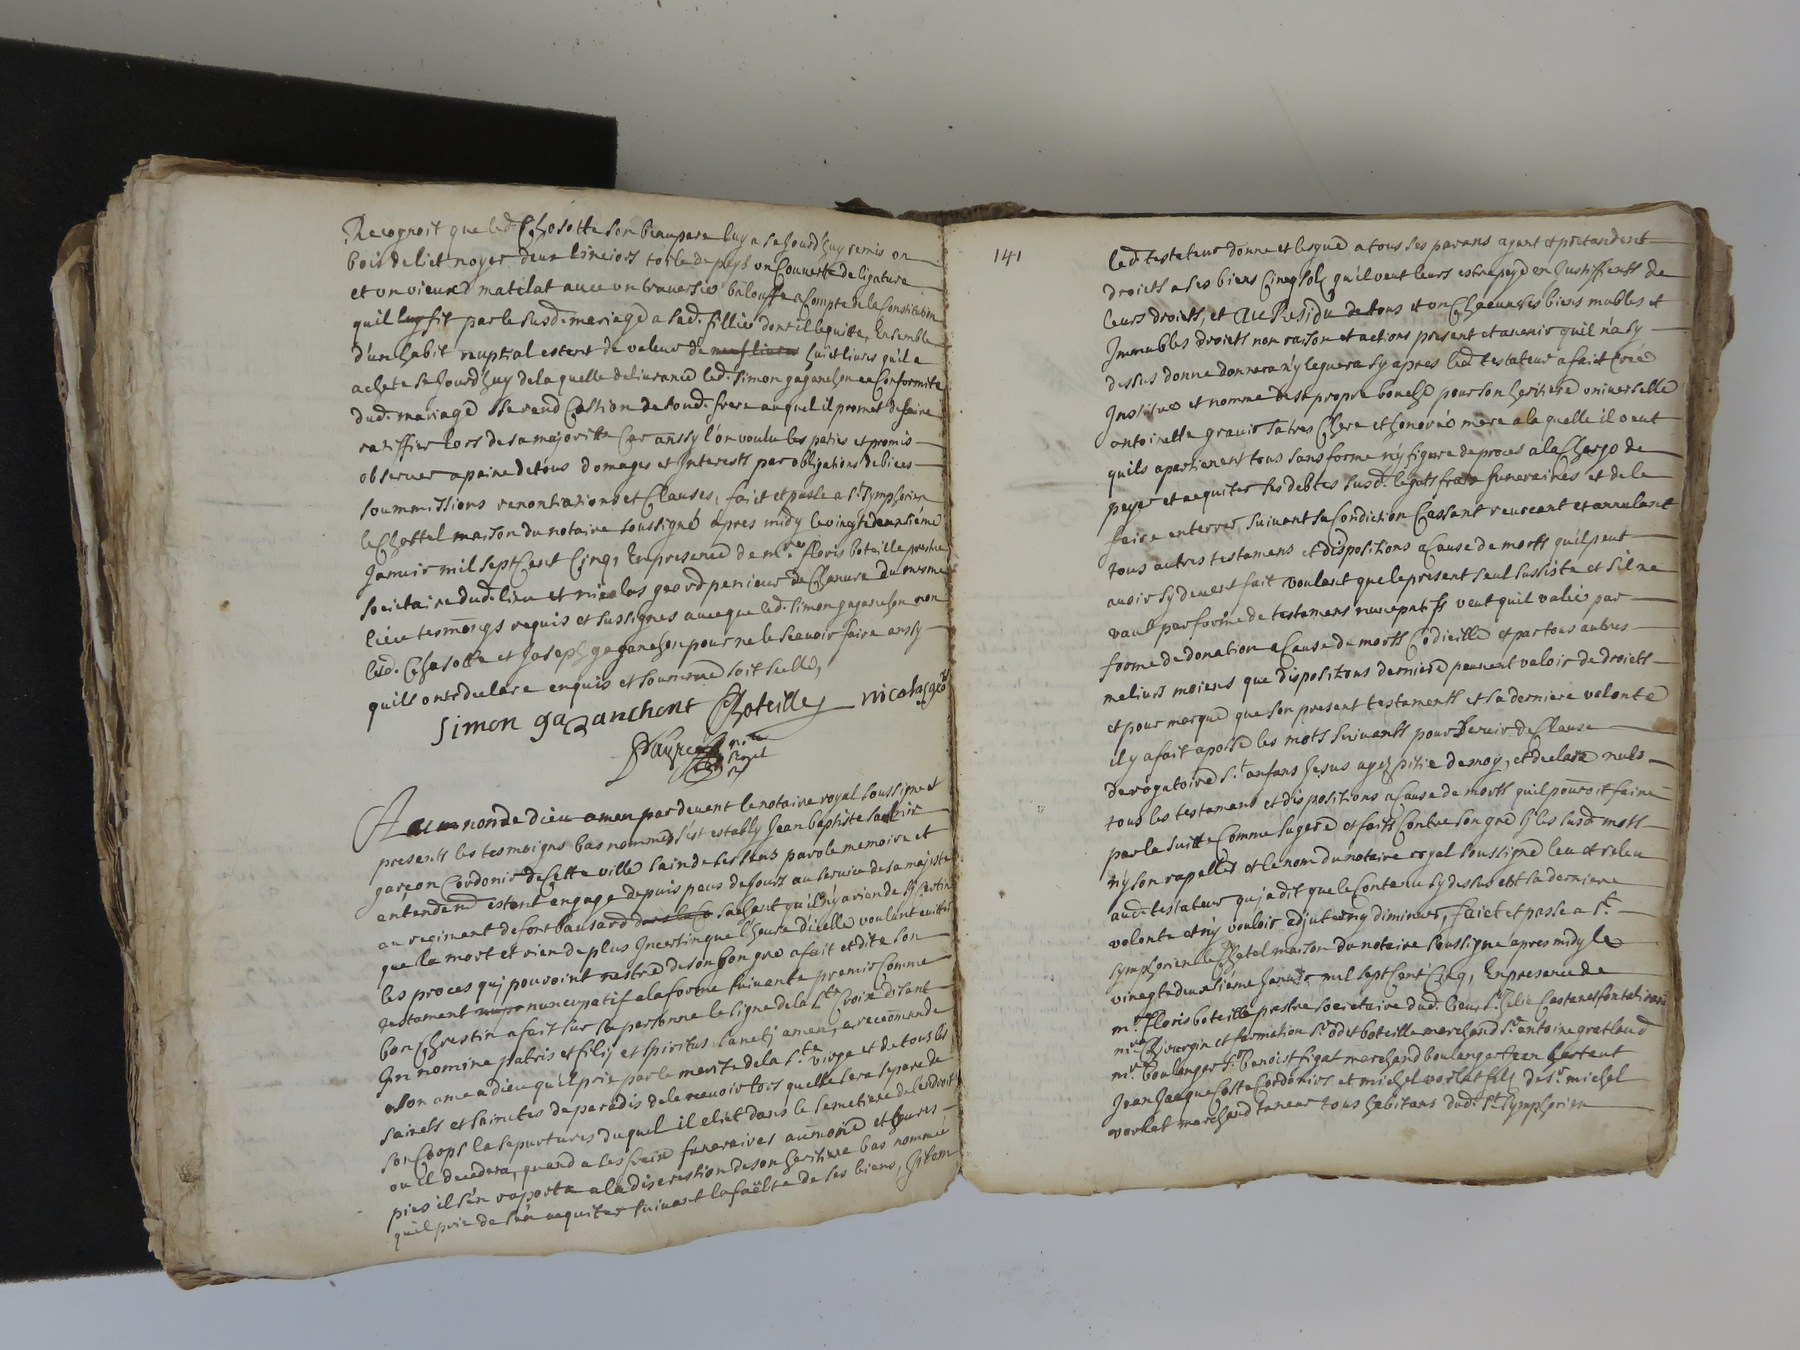 Recognoit que led. Chosotte son beaupere luy a Se Jourdhuy remis un
bois de lict noyer deux linciers toile de pays un Couverte de ligature
et un vieuxd matelat avec un traversie balouffe a Compte de la Constitution
quil luy fit par le susd. mariage a sad. fillie dont il le quitte, Ensemble
d'un habit nuptial estent de valeur de neuf livres huit livres quila
achete Se Jourdhuy de laquelle delivrance led. Simon gaganchon en Conformite
dud. mariage sse rend Caition de soud. frere auquel il promet de faire
ratiffier lors de sa majoritte Car anssy l'on voulu les paties et promis
observer a paine de tous domages et Interests par obligations de biens
soummissions renontiations et Clauses, faict et passe a St. Symphorien
le Chattel maison du notaire soussigne apres midy le vingtdeuxiéme
Janvier mil sept Cent Cinq, En presence de mre floris boteille prestre
societaire dud. lieu et nicolas geord penieur de Chanvre du mesme
lieu tesmongs requis et sussignes avecque led. Simon gaganchon non
led. Chasotte et Joseph gaganchon pour ne le scavoir faire anssy
quils ont declare enquis et sommé soit scelle,
Simon gazanchont Boteille nicolas geo
nre Royal
Au nom de dieu amen par devent le notaire royal soussigne et
presents les tesmoigns bas nommed s'est estably Jean baptiste
garçon Cordonie de Cette ville sain de ses sens parole memoire et
entendem estent engage depuis peus de Jours au service de sa majeste
au regiment de fontbausard dans la Co Sachant quil n'ÿ a rien de sy Certin
que la mort et rien de plus Incertin que l'heure d'icelle voulant evitter
les proces quj pouroint nestre de son bon gre a fait et dite son
testament nupc nuncupatif a la forme suivante premier Comme
bon Chrestin a fait sur sa personne le signe de la Ste Croix disant
Jn nomine patris et filij et spiritus sanctj amen, a recommande
son ame a dieu qu'il prie par le merite de la Ste vierge et de tous les
saincts et sainctes de paradis de la recevoir lors quelle sera separe de
son Corps la sepurtures duquel il elict dans le Semetiere de l'endroit
ou il decedera, quend a ses frais funeraires aumone et heuvres
pies il s'en raporte a la discrestion de son heritiere bas nommée
qu'il prie de s'en acquiter suivant la facülte de ses biens, Jtem
141
led. testateur donne et legue a tous ses parans ayant et pretandent
droicts a ses biens Cinq sols quil veut leurs estre payé en Justiffients de
leurs droicts, et Au Residu de tous et un Chacun ses biens mubles et
Immeubles droicts nom raison et actions present et avenir quil n'a sy
dessus donne donnera n'y leguera sy apres led. testateur a fait Créé
Institue et nomme de sa propre bouche pour son heritiere universelle
antoinette gravis sa tres Chere et honorée mere a laquelle il veut
quils apartienent tous sans forme n'ÿ figure de proces a la Chargo de
payer et acquiter ses debtes susd. legats frais funeraires et de le
faire enterrer, suivant sa Condiction Cassant revocant et annulant
tous autres testamens et dispositions a Cause de morts quil peut
avoir sy devent fait voulant que le present seul sussiste et s'il ne
vaut par forme de testament nuncupatifs veut quil valie par
forme de donation a Cause de morts Codicille et par tous autres
melieurs moiens que dispositions derniere peuvent valoir de droicts
et pour marque que son present testaments et sa derniere volonte
il y a fait aposse les mots suivants pour servir de Clause
derogatoire St. anfans Jesus ayez pitie demoy, et declare nuls
tous les testamens et dispositions a Cause de morts quil pouroit faire
par la suitte Comme sugeré et faits Contre son gré sy les susd. mots
n'y son rapellés et le nom du notaire royal soussigne leu et releu
aud. testateur quj a dit que le Contenu sy dessus est sa derniere
volonte et n'y vouloir adjuter n'y diminuer, faict et passe a St.
Symphorien le Chatel maison du notaire soussigne apres midy le
vinegtdeuxiéme Janvier mil sept Cent Cinq, En presence de
mre Floris boteille prestre societaire dud. lieu,
mre Chirurgin et St. odet boteille marchand St. antoine gratloud
mre boulanger Sr. benoist figat marchand boulanger Jean bastent
Jean Jacque Coste Cordonies et michel vorlat fils de Sr. michel
vorlat marchand taneur tous habitans dud. St. Symphorien